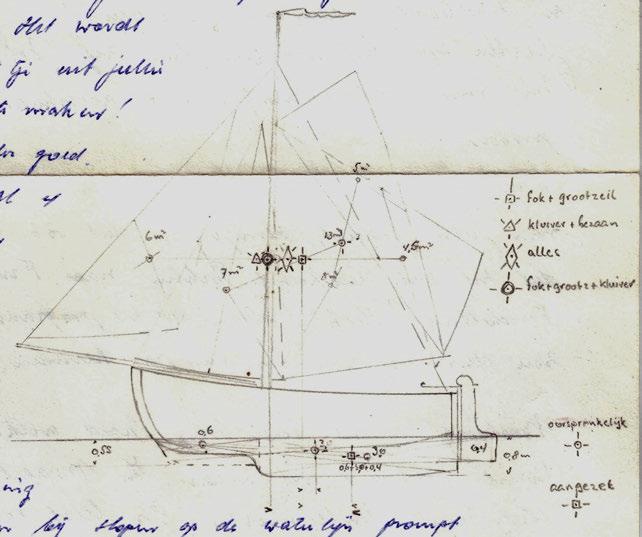 Het wordt
uit jullie
maken!
goed.
5 m²
6 m²
13 m²
4,5 m²
7 m²
fok + grootzeil
kluiver + bezaan
alles
fok + grootz + kluiver
0,55
0,6
0,4
0,8 m
oorspronkelijk
aangezet
ning
bij slopen op de waterlijn prompt